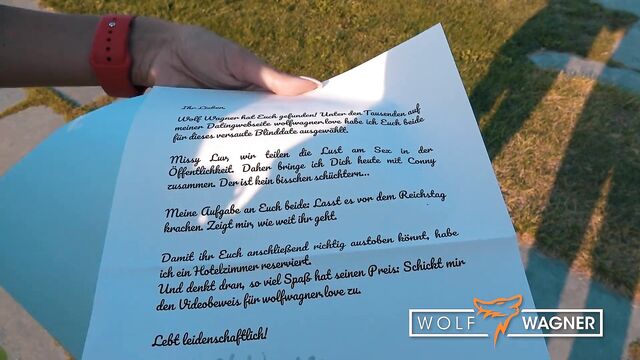 Ihr Lieben,
Wolf Wagner hat Euch gefunden! Unter den Tausenden auf
meiner Datingwebseite wolfwagner.love habe ich Euch beide
für dieses versaute Blinddate ausgewählt.
Missy Luv, wir teilen die Lust am Sex in der
Öffentlichkeit. Daher bringe ich Dich heute mit Conny
zusammen. Der ist kein bisschen schüchtern...
Meine Aufgabe an Euch beide: Lasst es vor dem Reichstag
krachen. Zeigt mir, wie weit ihr geht.
Damit ihr Euch anschließend richtig austoben könnt, habe
ich ein Hotelzimmer reserviert.
Und denkt dran, so viel Spaß hat seinen Preis: Schickt mir
den Videobeweis für wolfwagner.love zu.
Lebt leidenschaftlich!
WOLF WAGNER